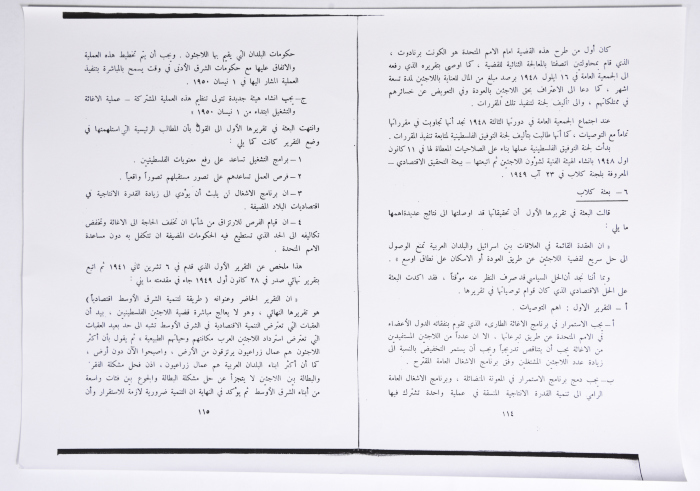 كان أول من طرح هذه القضية امام الامم المتحدة هو الكونت برنادوت ،
الذي قام بمحاولتين اتصفتا بالمعالجة الثنائية للقضية ، كما اوصى بتقريره الذي رفعه
الى الجمعية العامة في ١٦ ايلول ١٩٤٨ برصد مبلغ من المال للعناية باللاجئين لمدة تسعة
اشهر ، كما دعا الى الاعتراف بحق اللاجئين بالعودة وفي التعويض عن خسائرهم
في ممتلكاتهم ، والى تأليف لجنة لتنفيذ تلك المقررات .
عند اجتماع الجمعية العامة في دورتها الثالثة ١٩٤٨ نجد أنها تجاوبت في مقرراتها
تماماً مع التوصيات ، كما أنها طالبت بتأليف لجنة التوفيق الفلسطينية لمتابعة تنفيذ المقررات .
بدأت لجنة التوفيق الفلسطينية عملها بناء على الصلاحيات المعطاة لها في ١١ كانون
اول ١٩٤٨ بانشاء الهيئة الفنية لشؤون اللاجئين ثم اتبعتها – ببعثة التحقيق الاقتصادي –
المعروفة بلجنة كلاب في ٢٣ آب ١٩٤٩ .
٦ – بعثة كلاب
قالت البعثة في تقريرها الأول أن تحقيقاتها قد اوصلتها الى نتائج عديدة اهمها
ما يلي :
« ان العقدة القائمة في العلاقات بين اسرائيل والبلدان العربية تمنع الوصول
الى حل سريع لقضية اللاجئين عن طريق العودة أو الاسكان على نطاق اوسع » .
وبما أننا نجد أن الحل السياسي قد صرف النظر عنه موقتاً ، فقد اكدت البعثة
على الحل الاقتصادي الذي كان قوام توصياتها في تقريرها .
أ – التقرير الاول : اهم التوصيات .
أ – يجب الاستمرار في برنامج الاغاثة الطارىء الذي تقوم بنفقاته الدول الأعضاء
في الامم المتحدة عن طريق تبرعاتها . الا ان عدداً من اللاجئين المستفيدين
من الاغاثة يجب أن يتناقص تدريجياً ويجب أن يستمر التخفيض بالنسبة الى
زيادة عدد اللاجئين المشتغلين وفق برنامج الاشغال العامة المقترح .
ب – يجب دمج برنامج الاستمرار في المعونة المتضائلة ، وبرنامج الاشغال العامة
الرامي الى تنمية القدرة الانتاجية المنسقة في عملية واحدة تشترك فيها
١١٤
حكومات البلدان التي يقيم بها اللاجئون . ويجب أن يتم تخطيط هذه العملية
والاتفاق عليها مع حكومات الشرق الأدنى في وقت يسمح بالمباشرة بتنفيذ
العملية المشار اليها في ١ نيسان ١٩٥٠ .
ج – يجب انشاء هيئة جديدة تتولى تنظيم هذه العملية المشتركة – عملية الاغاثة
والتشغيل ابتداء من ١ نيسان ١٩٥٠ » .
وانتهت البعثة في تقريرها الأول الى القول بأن المطالب الرئيسية التي استلهمتها في
وضع التقرير كانت كما يلي :
١ – برامج التشغيل تساعد على رفع معنويات الفلسطينيين .
٢ – فرص العمل تساعدهم على تصور مستقبلهم تصوراً واقعياً .
٣ – ان برنامج الاشغال لن يلبث أن يؤدي الى زيادة القدرة الانتاجية في
اقتصاديات البلاد المضيفة .
٤ – ان قيام الفرص للارتزاق من شأنها ان تخفف الحاجة الى الاغاثة وتخفض
تكاليفه الى الحد الذي تستطيع فيه الحكومات المضيفة ان تتكفل به دون مساعدة
الامم المتحدة .
هذا ملخص عن التقرير الاول الذي قدم في ٦ تشرين ثاني ١٩٤١ ثم اتبع
بتقرير نهائي صدر في ٢٨ كانون أول ١٩٤٩ جاء في مقدمته ما يلي :
« ان التقرير الحاضر وعنوانه ( طريقة لتنمية الشرق الأوسط اقتصادياً )
هو تقريرها النهائي ، وهو لا يعالج مباشرة قضية اللاجئين الفلسطينيين . بيد أن
العقبات التي تعترض التنمية الاقتصادية في الشرق الأوسط تشبه الى حد بعيد العقبات
التي تعترض استرداد اللاجئين العرب مكانتهم وحياتهم الطبيعية » ثم يقول بأن أكثر
اللاجئون هم عمال زراعيون يرتزقون من الأرض ، واصبحوا الآن دون أرض ،
كما أن أكثر ابناء البلدان العربية هم عمال زراعيون ، اذن فحل مشكلة الفقر
والبطالة بين اللاجئين لا يتجزأ عن حل مشكلة البطالة والجوع بين فئات واسعة
من أبناء الشرق الأوسط ثم يؤكد في النهاية ان التنمية ضرورية لازمة للاستقرار وأن
١١٥